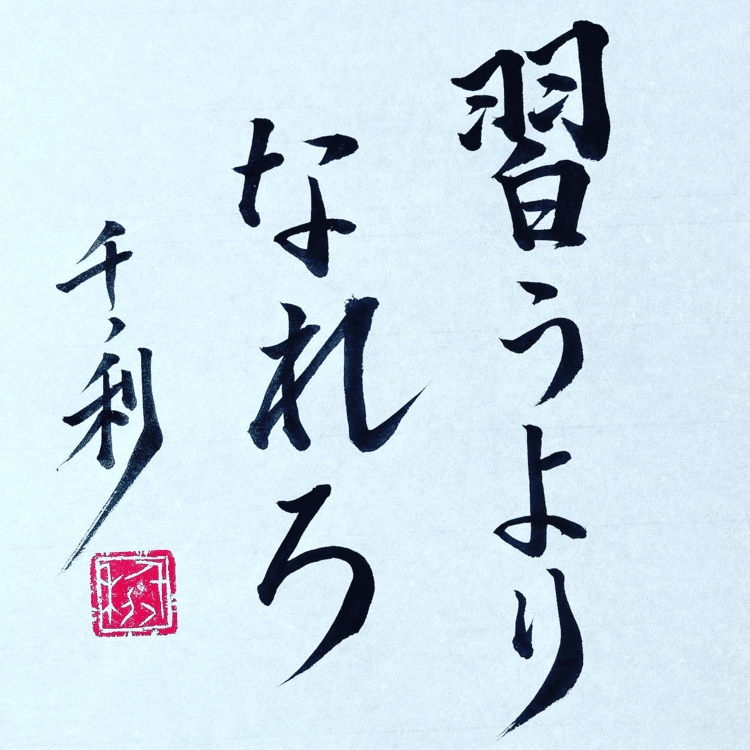 習うより
なれろ
千ノ利